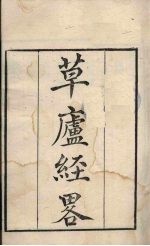 草廬經畧